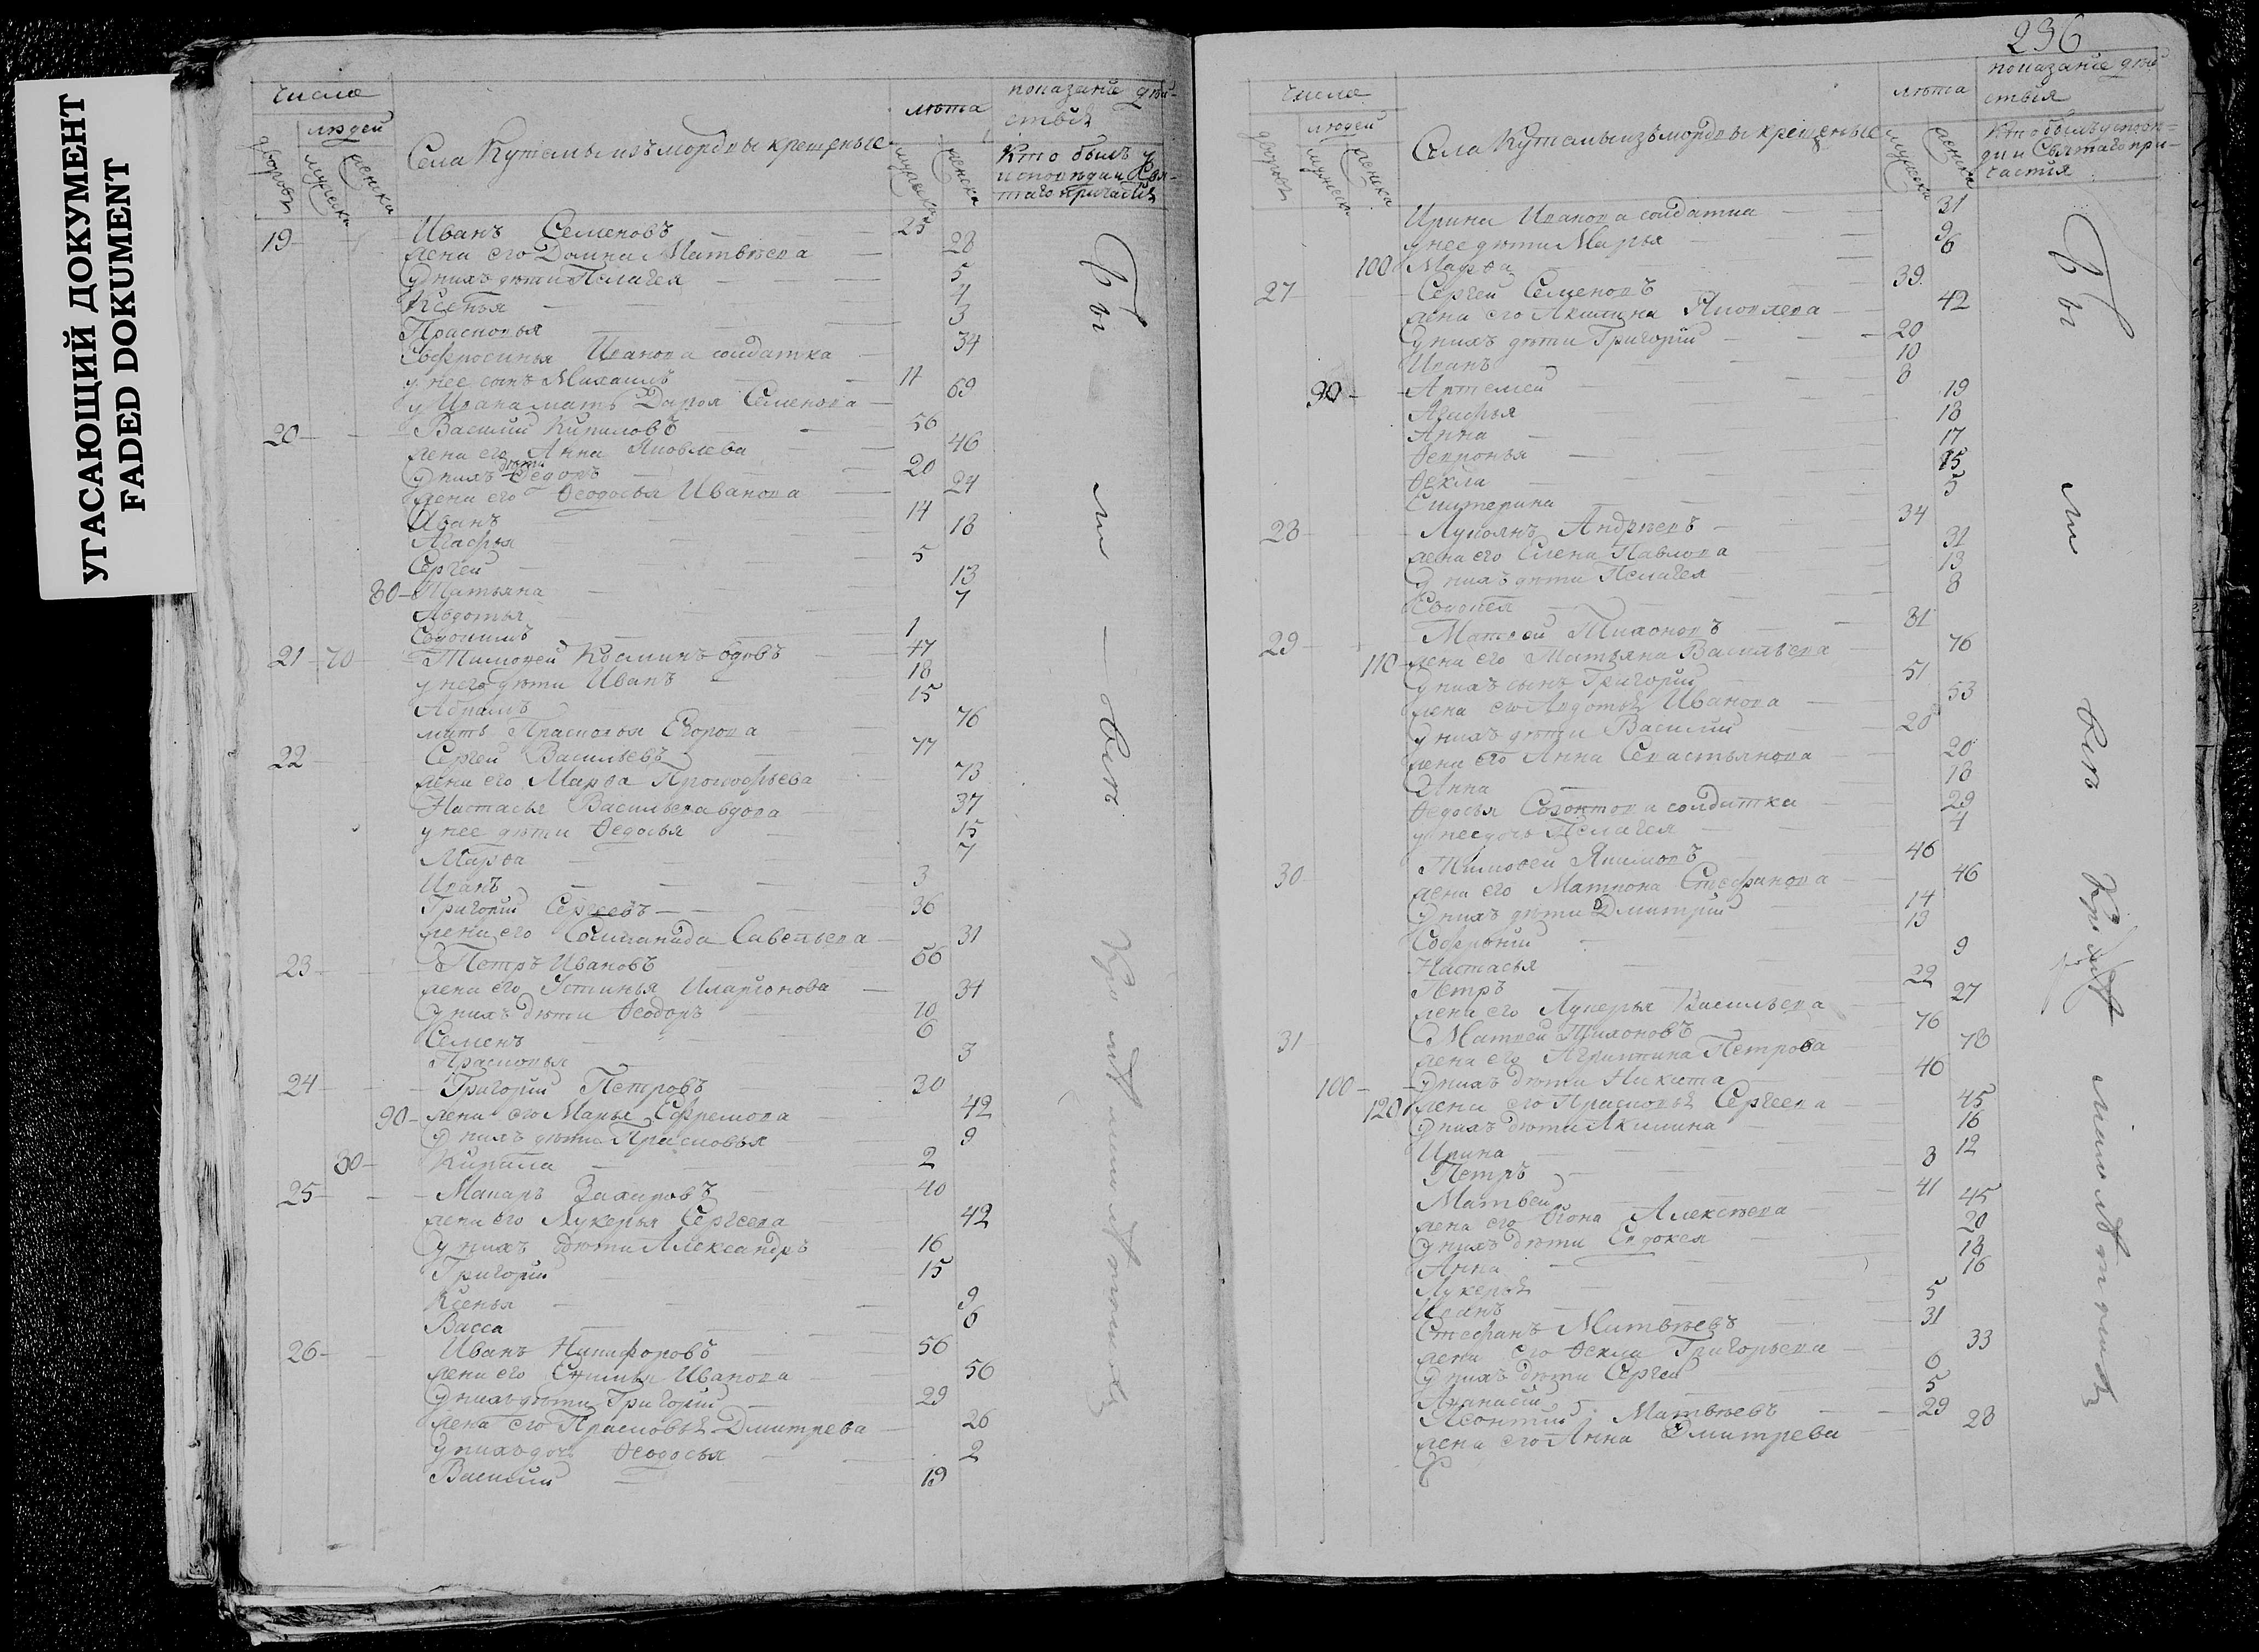 УГАСАЮЩИЙ ДОКУМЕНТ
FADED DOKUMENT
числа
людей
дворовъ
мужеска
женска
Села Кутамы изъ мордвы крещеные
лѣта
мужеска
женска
показаніе дѣй-
ствія
кто былъ у
исповѣди и Свя-
таго причастія
19 Иванъ Семеновъ 25
жена его Домна Матвѣева 28
у нихъ дѣти Пелагея 5
Ксенья 4
Прасковья 3
Ефросинья Иванова солдатка 34
у нее сынъ Михаилъ 11
у Ивана мать Дарья Семенова 69
20 Василий Кириловъ 56
жена его Анна Яковлева 46
у нихъ дѣти Федоръ 20
жена его Ѳеодосья Иванова 24
Иванъ 14
Агафья 18
Сергей 5
80 Татьяна 13
Авдотья 7
1
21 70 Тимоѳей Козминъ вдовъ 47
у него дѣти Иванъ 18
Абрамъ 15
мать Прасковья Егорова 76
22 Сергей Васильевъ 77
жена его Марѳа Прокофьева 73
Настасья Васильева вдова 37
у нее дѣти Ѳедосья 15
Марѳа 7
Иванъ 3
Григорий Сергеевъ 36
жена его Соломанида Савельева 31
23 Петръ Ивановъ 56
жена его Устинья Иларионова 34
у нихъ дѣти Ѳеодоръ 10
Семенъ 6
Прасковья 3
24 Григорий Петровъ 30
90 жена его Марья Ефремова 42
у нихъ дѣти Прасковья 9
80 Кирила 2
25 Макаръ Захаровъ 40
жена его Лукерья Сергеева 42
у нихъ дѣти Александръ 16
Григорий 15
Ксенья 9
Васса 6
26 Иванъ Никифоровъ 56
жена его Иванова 56
у нихъ дѣти Григорий 29
жена его Прасковья Дмитрева 26
у нихъ дочь Ѳеодосья 2
Василий 19
Бы ли всѣ
кромѣ малолѣтныхъ
236
числа
людей
дворовъ
мужеска
женска
Села Кутамы изъ мордвы крещеные
лѣта
мужеска
женска
показаніе дѣй-
ствія
кто былъ у исповѣ-
ди и Святаго при-
частія
Ирина Иванова солдатка 31
у нее дѣти Марья 9
100 Марѳа 6
27 Сергей Семеновъ 39
жена его Акилина Яковлева 42
у нихъ дѣти Григорий 20
Иванъ 10
90 Артемей 8
Агафья 19
Анна 18
Ѳевронья 17
Ѳекла 15
Екатерина 5
28 Лукоянъ Андрѣевъ 34
жена его Елена Павлова 31
у нихъ дѣти Пелагея 13
Евдокея 8
29 Матвей Тихоновъ 81
110 жена его Татьяна Васильева 76
у нихъ сынъ Григорий 51
жена его Авдотья Иванова 53
у нихъ дѣти Василий 20
жена его Анна Севастьянова 20
Анна 18
Ѳедосья Созонтова солдатка 29
у нее дочь Пелагея 4
30 Тимоѳей Якимовъ 46
жена его Матрона Стефанова 46
у нихъ дѣти Дмитрий 14
Софроний 13
Настасья 9
Петръ 22
жена его Лукерья Васильева 27
31 Матвей Тихоновъ 76
жена его Агрипина Петрова 78
100 у нихъ дѣти Никита 40
120 жена его Прасковья Сергеева 45
у нихъ дѣти Акилина 16
Ирина 12
Петръ 3
Матвей 41
жена его Ѳіона Алексѣева 45
у нихъ дѣти Евдокея 20
Анна 18
Лукерья 16
Иванъ 5
Стефанъ Матвѣевъ 31
жена его Ѳекла Григорьева 33
у нихъ дѣти Сергей 6
Ананасий 5
Леонтий Матвѣевъ 29
жена его Анна Дмитрева 28
Бы ли всѣ
кромѣ малолѣтныхъ